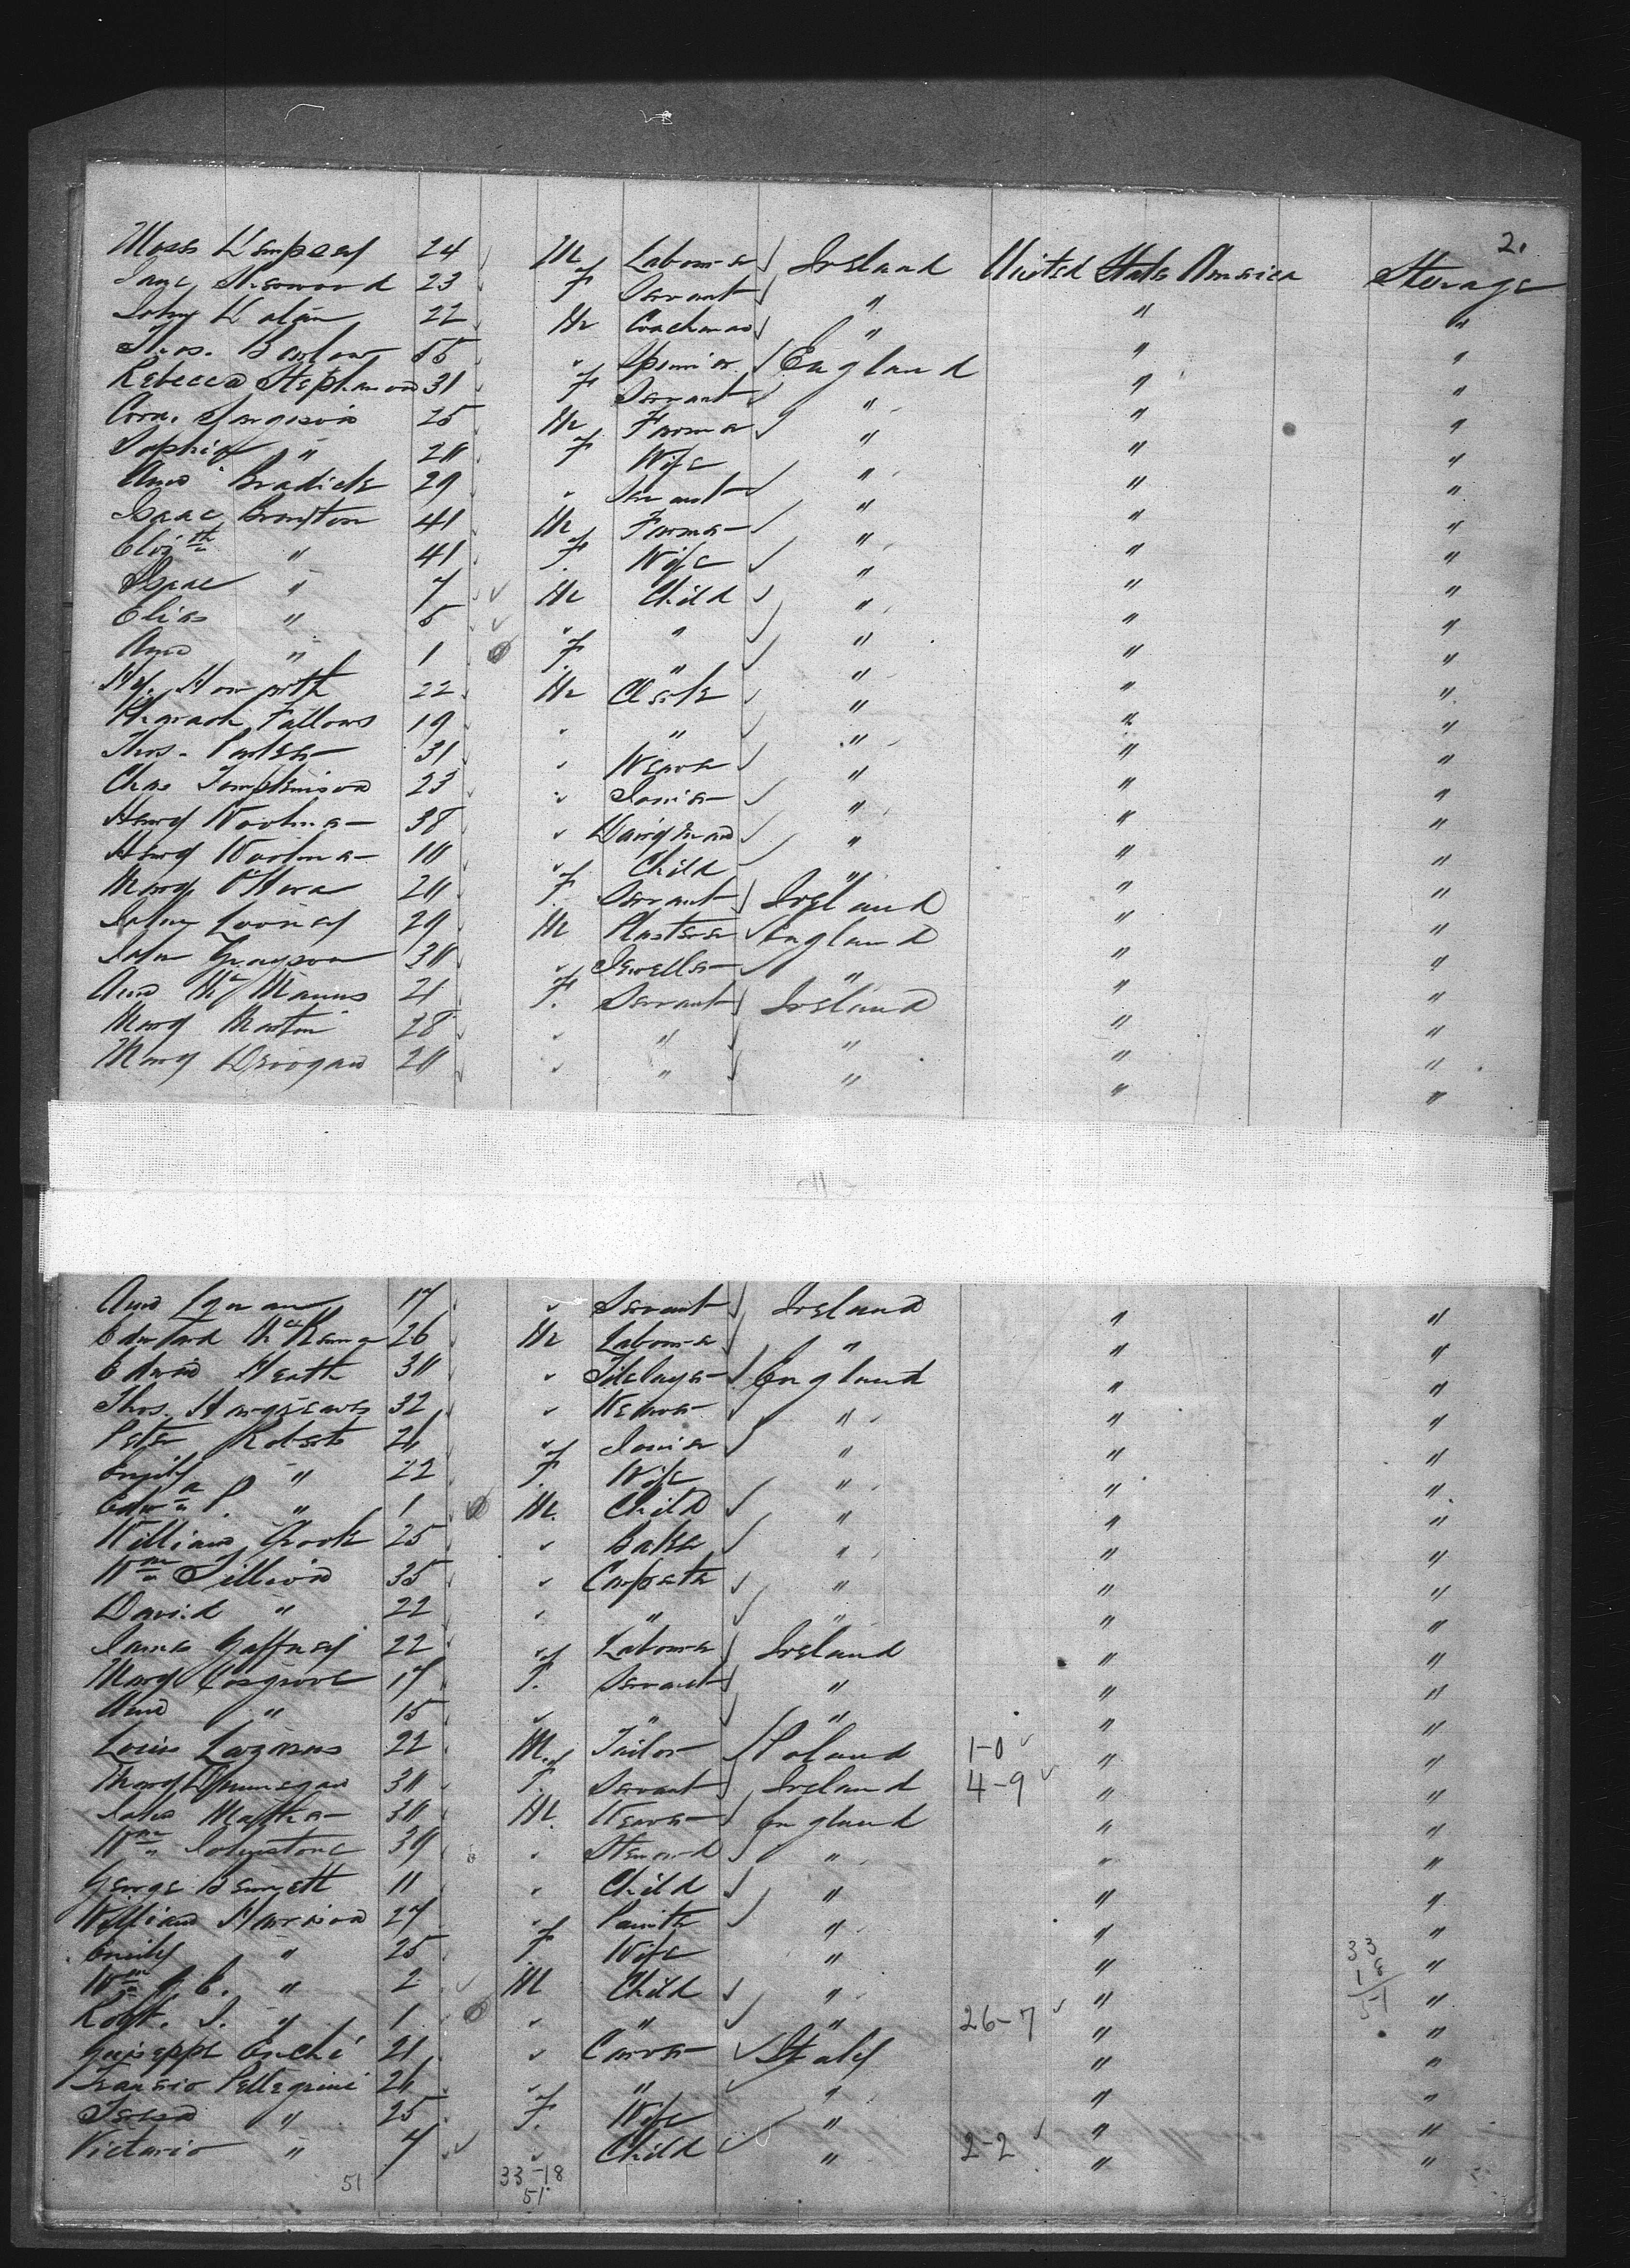 2.
Moses Dempsey 24 M Labourer Ireland United States America Steerage
Jane Sherwood 23 F Servant " " "
John Dolan 22 M Coachman " " "
Thos. Barlow 55 " Spinner England " "
Rebecca Stephenson 31 F Servant " " "
Corn. Sargisson 25 M Farmer " " "
Sophia " 20 F Wife " " "
Ann Bradick 29 " Servant " " "
Isaac 41 M Farmer " " "
Elizth " 41 F. Wife " " "
Isaac " 7 M Child " " "
Elias " 5 " " " " "
Ann " 1 F. " " " "
Hy. Howarth 22 M Clerk " " "
Pharaoh Fallows 19 " " " " "
Thos. Parker 31 " Weaver " " "
Chas Tomplinson 23 " Joiner " " "
Henry Woolmer 38 " Dairyman " " "
Henry Woolmer 10 " Child " " "
Mary O'Hara 20 F. Servant Ireland " "
John Looney 29 M Plasterer England " "
John Grayson 30 " Jeweller " " "
Ann McManus 21 F. Servant Ireland " "
Mary Martin 28 " " " " "
Mary Derogan 20 " " " " "
Ann 17 " Servant Ireland " "
Edward McKenna 26 M Labourer " " "
Edwin Heath 30 " Tilelayer England " "
Thos. Hargreaves 32 " Weaver " " "
Peter Roberts 26 " Joiner " " "
Emily " 22 F. Wife " " "
Edwn P. " 1 M. Child " " "
William Crook 25 " Baker " " "
Wm Tillison 35 " Carpeter " " "
David " 22 " " " " "
James Gaffney 22 " Labourer Ireland " "
Mary Cosgrove 17 F. Servant " " "
Ann " 15 " " " " "
Louis Lazarus 22 M. Tailor Poland 1-0 " "
Mary Dunnegan 30 F. Servant Ireland 4-9 " "
John Mather 30 M. Weaver England " "
Wm Johnstone 39 " Steward " " "
George Bennett 11 " Child " " "
William Harrison 27 " " " "
Emily " 25 F. Wife " " "
Wm " 2 M Child " " " 33 18 51
Robt. J. " 1 " " " 26-7 " "
Guiseppe 21 " Carver Italy " "
Pellegrini 26 " " " " "
Teresa " 25 F. Wife " " "
Victorio " 7 " Child " 2-2 " "
51 33-18
51